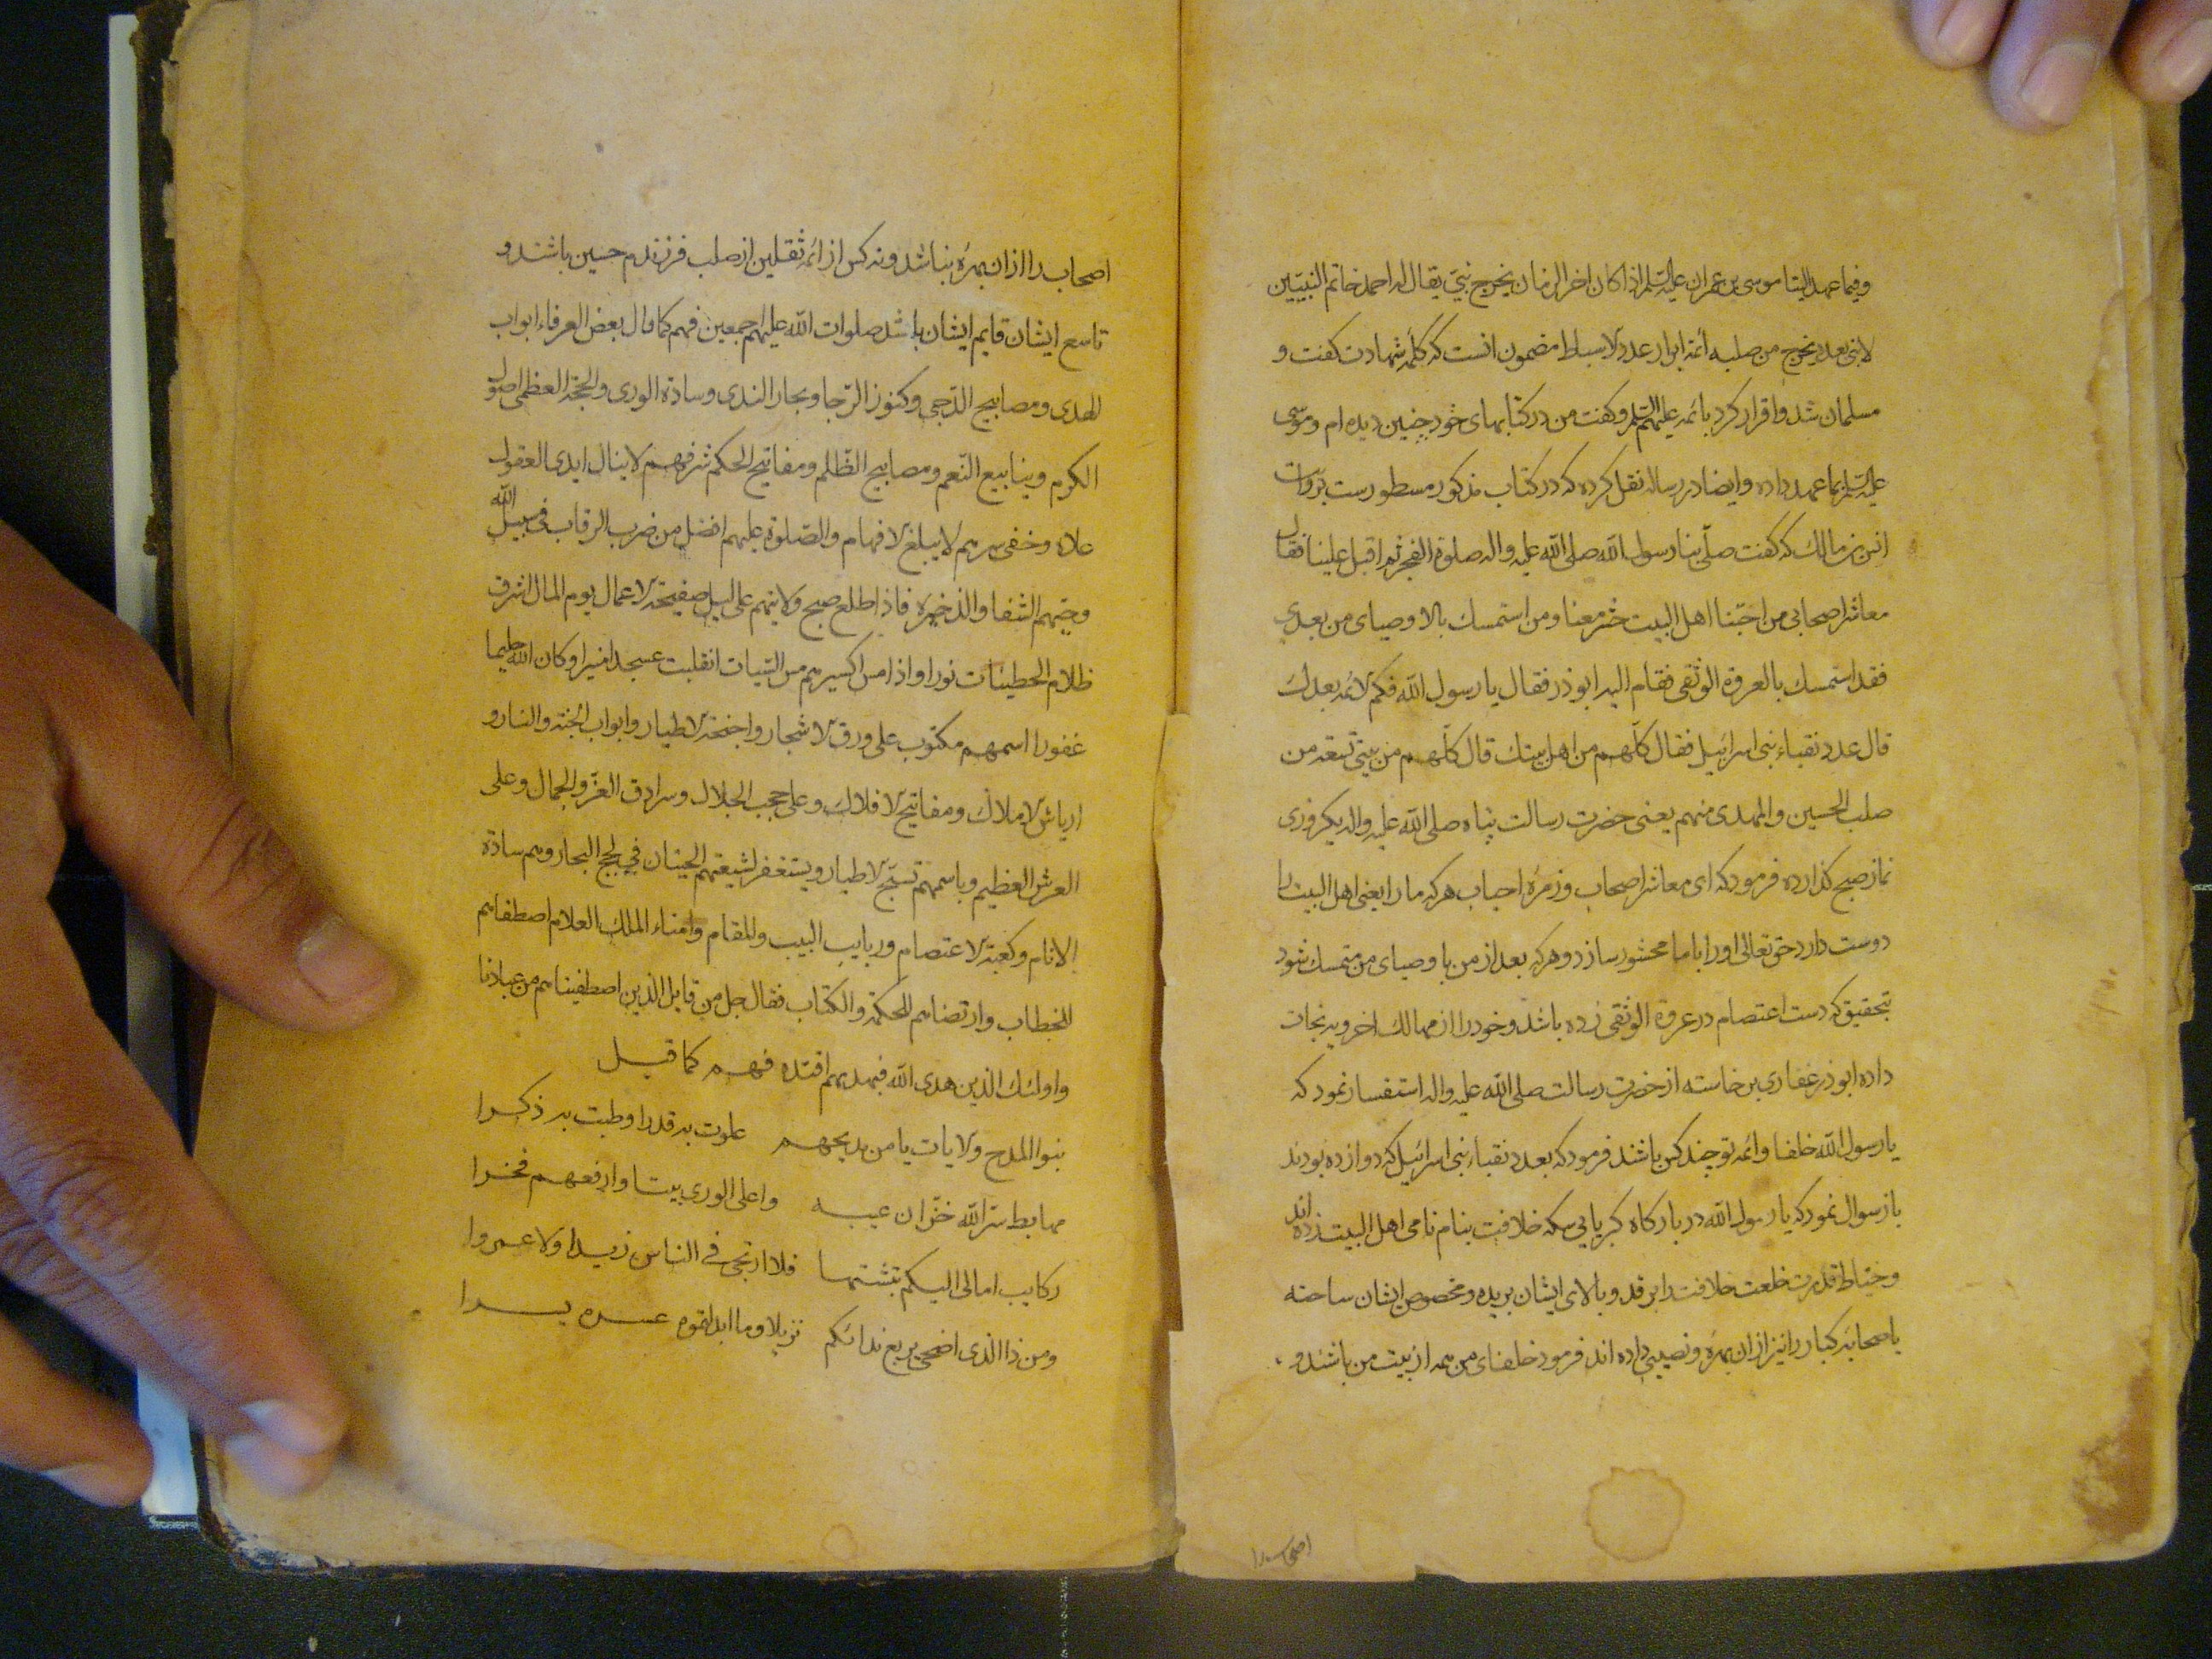 وفیما عهد الینا موسی بن عمران علیه السلم اذا کان اخر الزمان یخرج نبی یقال له احمد خاتم النبیین
لا نبی بعده یخرج من صلبه ائمة ابرار عدد الاسباط مضمون انست که کلمه شهادت کفت و
مسلمان شد و اقرار کرد بائمه علیهم السلم و کفت من در کتابهای خود چنین دیده ام و موسی
علیه السلم بما عهد داده و ایضا در رساله نقل کرده که در کتاب مذکور مسطورست بروایت
انس بن مالک که کفت صلی بنا رسول الله صلی الله علیه واله صلوة الفجر ثم اقبل علینا فقال
معاشر اصحابی من احبنا اهل البیت حشر معنا ومن استمسک بالاوصیای من بعدی
فقد استمسک بالعروة الوثقی فقام الیه ابوذر فقال یا رسول الله فکم الائمه بعدک
قال عدد نقباء بنی اسرائیل فقال کلهم من اهل بیتک قال کلهم من بیتی تسعه من
صلب الحسین والمهدی منهم یعنی حضرت رسالت پناه صلی الله علیه واله یکروزی
نماز صبح کذارده فرمود که ای معاشر اصحاب و زمره احباب هر که ما را یعنی اهل البیت را
دوست دارد حق تعالی او را با ما محشور سازد و هر که بعد از من باوصیای من متمسک شود
بتحقیق که دست اعتصام در عروة الوثقی زده باشد و خود را از مهالک اخرویه نجات
داده ابوذر غفاری برخاسته از حضرت رسالت صلی الله علیه واله استفسار نمود که
یا رسول الله خلفا و ائمه تو چند کس باشند فرمود که بعدد نقباء بنی اسرائیل که دوازده بودند
باز سوال نمود که یا رسول الله در بارکاه کبریایی سکه خلافت بنام نامی اهل البیت زده اند
و خیاط قدرت خلعت خلافت را بر قد و بالای ایشان بریده و مخصوص ایشان ساخته
یا صحابه کبار را نیز از ان بهره و نصیبی داده اند فرمود خلفای من همه از بیت من باشند و
اصحاب را
اصحاب را از ان بهره نباشد و نه کس از ائمه ثقلین از صلب فرزندم حسین باشند و
تاسع ایشان قایم ایشان باشد صلوات الله علیهم اجمعین فهم کما قال بعض العرفاء ابواب
الهدی و مصابیح الدجی و کنوز الرجا و بحار الندی و سادة الوری والحجة العظمی اصول
الکرم و ینابیع النعم و مصابیح الظلم و مفاتیح الحکم شرفهم لا ینال ایدی العقول
علاه و خفی سرهم لا یبلغ الافهام والصلوة علیهم افضل من ضرب الرقاب فی سبیل الله
وحبهم الشفا والذخیره فاذا طلع صبح ولایتهم علی لیل صفیحة الاعمال یوم المال اشرق
ظلام الخطیئات نورا واذا مس اکسیرهم مس السیات انقلبت عسجدا منیرا وکان الله حلیما
غفورا اسمهم مکتوب علی ورق الاشجار واجنحة الاطیار وابواب الجنة والنار و
اریاش الاملاک ومفاتیح الافلاک وعلی حجب الجلال وسرادق العز والجمال وعلی
العرش العظیم وباسمهم تسبح الاطیار ویستغفر لشیعتهم الحیتان فی لجج البحار وهم سادة
الانام وکعبة الاعتصام وربایب البیت والمقام وامناء الملک العلام اصطفاهم
للخطاب وارتضاهم للحکمة والکتاب فقال جل من قایل الذین اصطفیناهم من عبادنا
واولئک الذین هدی الله فبهدیهم اقتده فهم کما قیل
بنوا المدح والایات یا من بمدیحهم علوت به قدرا وطبت به ذکرا
مهابط سر الله خزان غیبه واعلی الوری بیتا وارفعهم فخرا
رکایب امالی الیکم بتشتها فلا ارتجی فی الناس زیدا ولا عمروا
ومن ذا الذی اضحی بربع ندائکم نزیلا وما ابدلتموه عسره یسرا